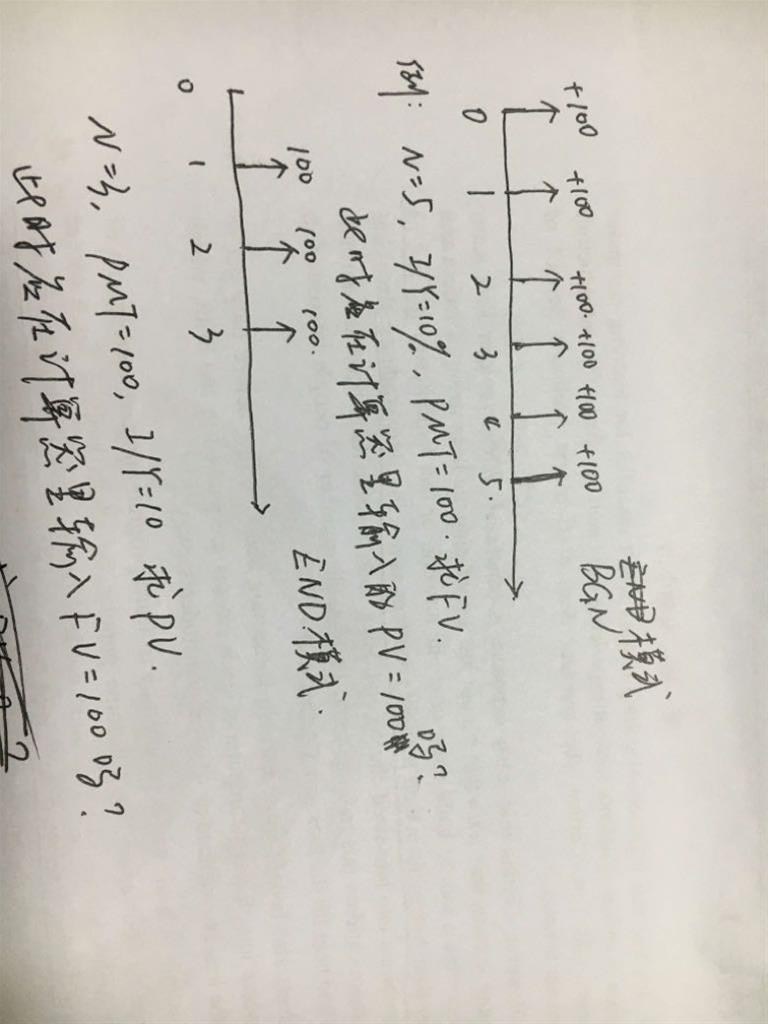 +100 +100 +100. +100 +100 +100
0 1 2 3 4 5.
BGN模式
例: N=5, I/Y=10%, PMT=100. 求FV.
此时应在计算器里输入的PV=100吗?
100 100 100.
0 1 2 3
END模式.
N=3, PMT=100, I/Y=10 求PV.
此时应在计算器里输入FV=100吗?